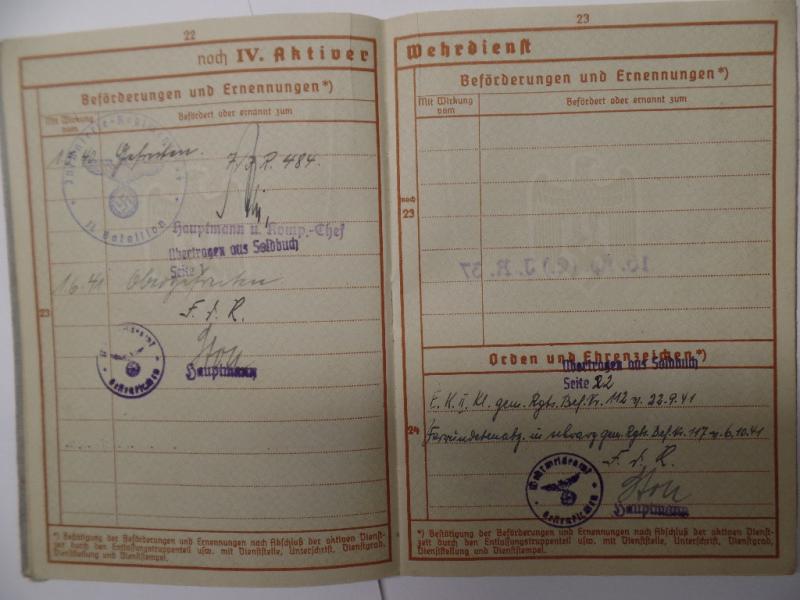 22
noch IV. Aktiver
Beförderungen und Ernennungen*)
Mit Wirkung vom
Befördert oder ernannt zum
Gefreiten.
7./J.R. 484.
II. Bataillon
Hauptmann u. Komp.-Chef
Übertragen aus Soldbuch
Seite
23
1.6.41 Obergefreiten
F. d. R.
Hauptmann
*) Bestätigung der Beförderungen und Ernennungen nach Abschluß der aktiven Dienst-
zeit durch den Entlassungstruppenteil usw. mit Dienststelle, Unterschrift, Dienstgrad,
Dienststellung und Dienststempel.
23
Wehrdienst
Beförderungen und Ernennungen*)
Mit Wirkung vom
Befördert oder ernannt zum
noch
23
Orden und Ehrenzeichen*)
Übertragen aus Soldbuch
Seite 22
E. K. II. Kl. gem. Rgts. Bef. Nr. 112 v. 22.9.41
24
Verwundetenabz. in schwarz gem. Rgts. Bef. Nr. 117 v. 6.10.41
F. d. R.
Wehrmeldeamt
Hauptmann
*) Bestätigung der Beförderungen und Ernennungen nach Abschluß der aktiven Dienst-
zeit durch den Entlassungstruppenteil usw. mit Dienststelle, Unterschrift, Dienstgrad,
Dienststellung und Dienststempel.